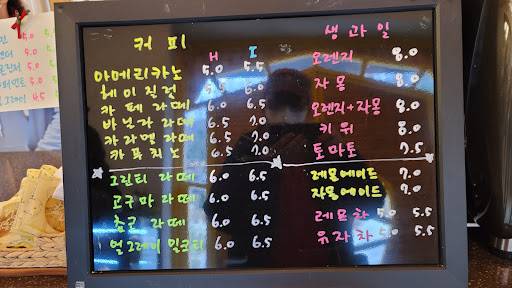 커피
H I
아메리카노 5.0 5.5
헤이즐넛 5.5 6.0
카페라떼 6.0 6.5
바닐라 라떼 6.5 7.0
카라멜 라떼 6.5 7.0
카푸치노 6.5 7.0
그린티 라떼 6.0 6.5
고구마 라떼 6.0 6.5
초코 라떼 6.0 6.5
얼그레이 밀크티 6.0 6.5
생과일
오렌지 8.0
자몽 8.0
오렌지+자몽 8.0
키위 8.0
토마토 7.5
레몬에이드 7.0
자몽에이드 7.0
레몬차 5.0 5.5
유자차 5.0 5.5